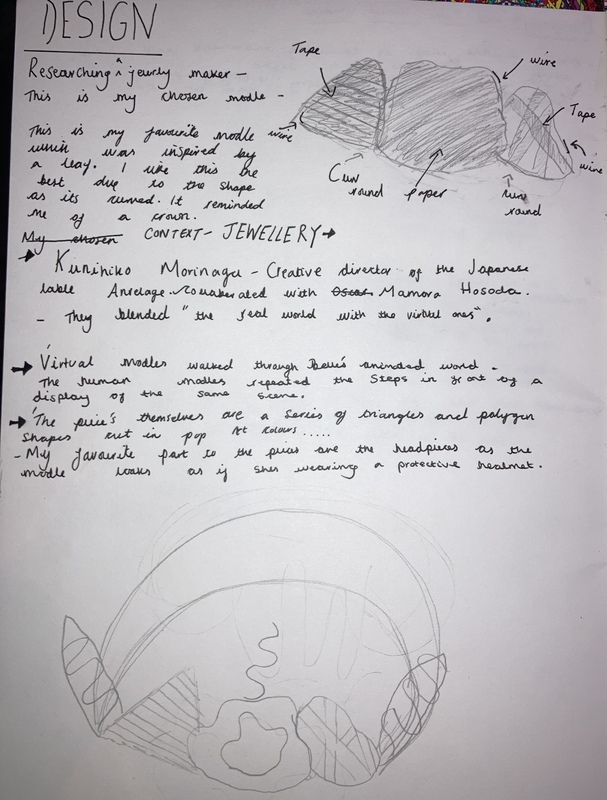 DESIGN
Researching ^a jewrly maker -
This is my chosen modle -
This is my favourite modle
which was inspired by
a leaf. I like this the
best due to the shape
as its curved. It reminded
me of a crown.
My chosen CONTEXT - JEWELLERY →
Tape
wire
wire
Tape
wire
Curv
round
paper
curv
round
→ Kunihiko Morinaga - Creative director of the Japanese
lable Anrelage. Coulaberated with Mamora Hosoda.
- They blended "the real world with the virtual ones".
→ Virtual modles walked through Belle's animded world.
The human modles repeated the steps in front by a
display of the same scene.
→ 'The peice's themselves are a series of triangles and polygon
shapes cut in pop Art colours .....
- My favourite part to the pices are the headpieces as the
modle looks as if shes wearing a protective healmet.